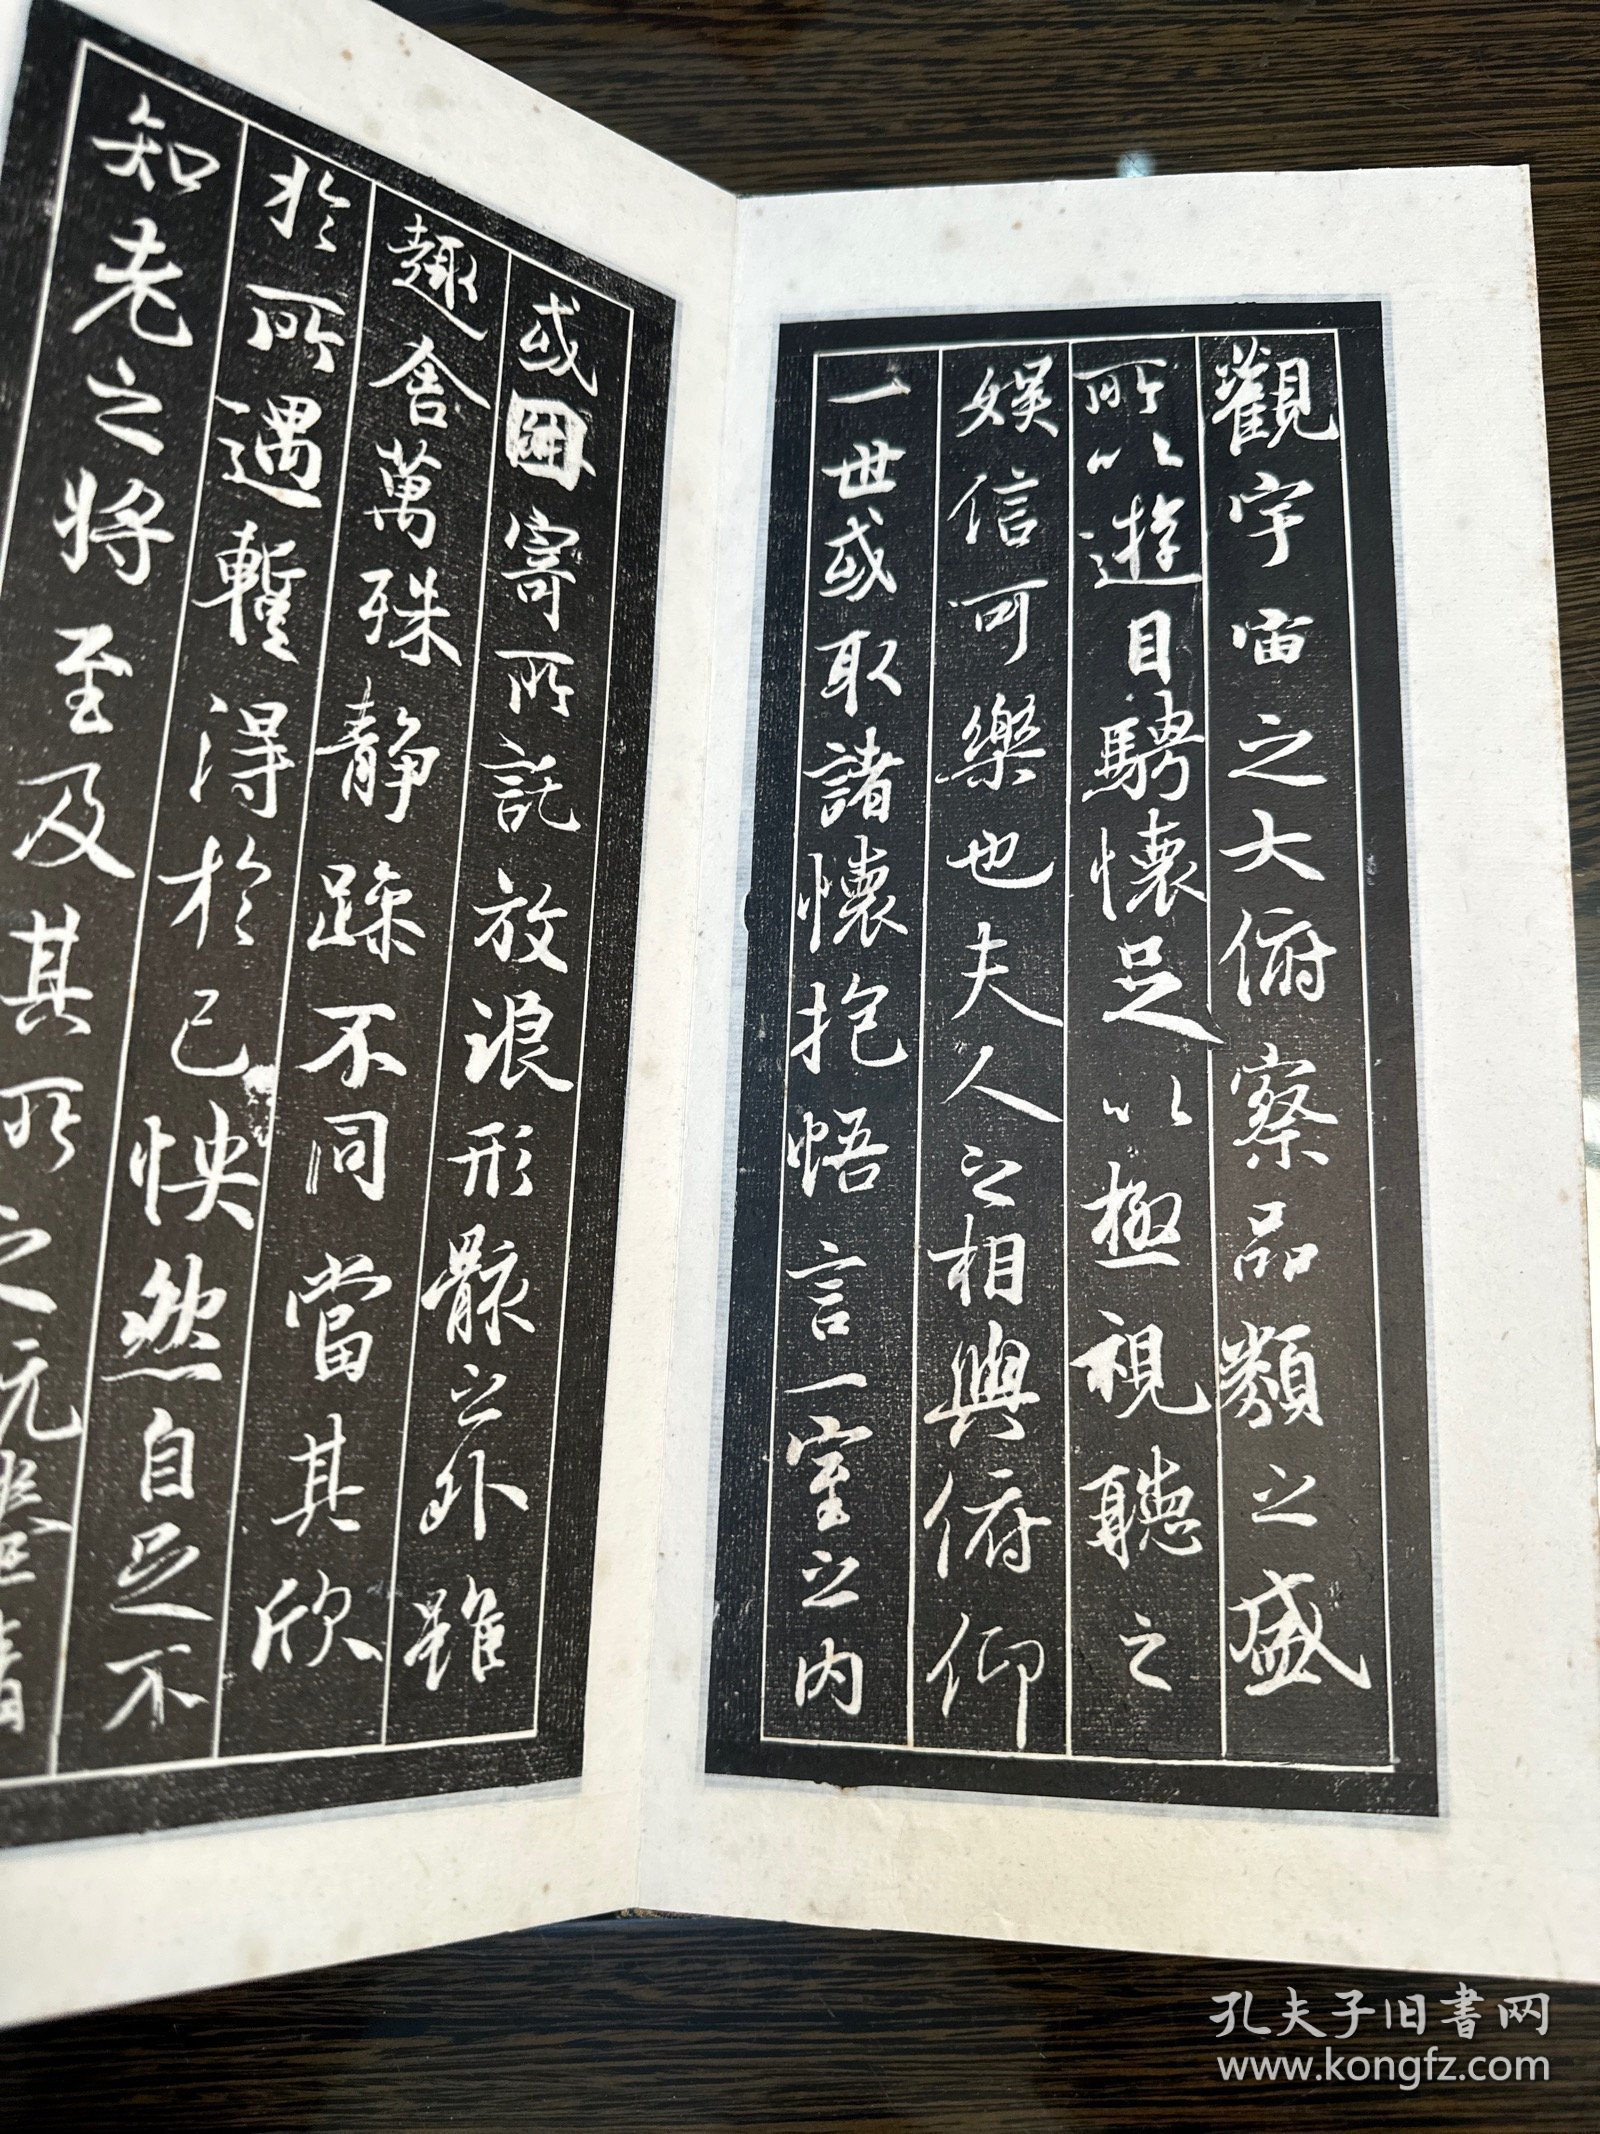 觀宇宙之大俯察品類之盛
所以遊目騁懷足以極視聽之
娛信可樂也夫人之相與俯仰
一世或取諸懷抱悟言一室之內
或因寄所託放浪形骸之外雖
趣舍萬殊静躁不同當其欣
於所遇蹔得於己怏然自足不
知老之將至及其所之既惓情
孔夫子旧书网
www.kongfz.com